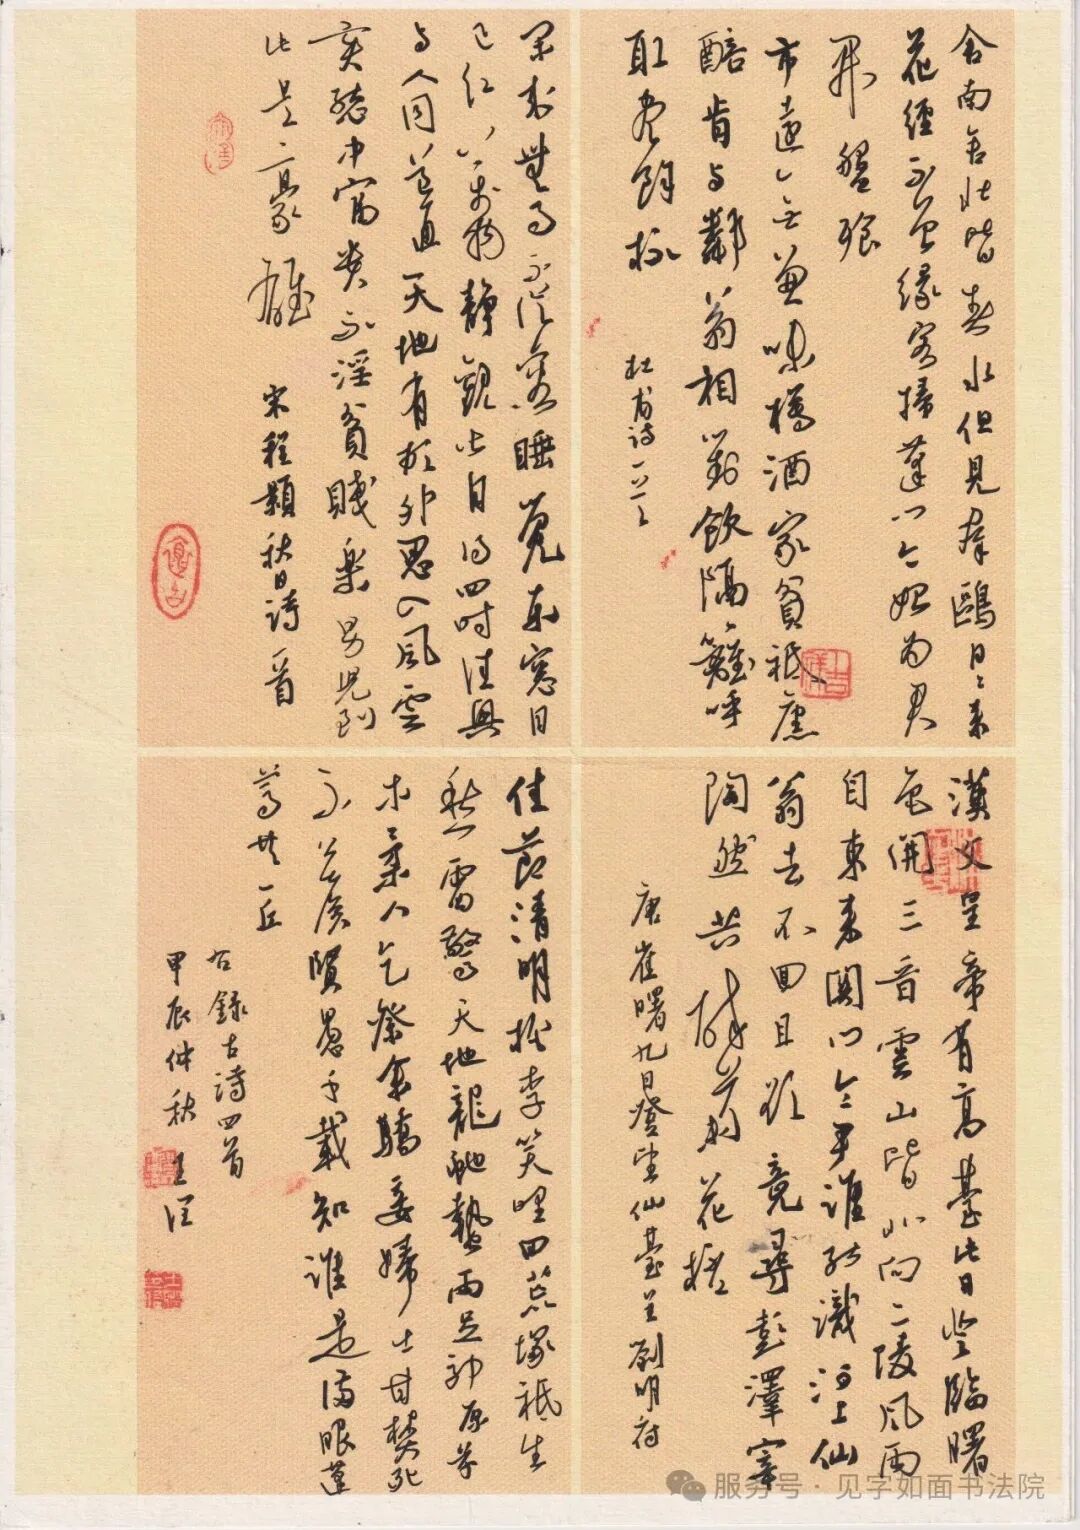 舍南舍北皆春水但見群鷗日々來
花徑不曾緣客掃蓬門今始為君
開盤飧
市遠無兼味樽酒家貧祇舊
醅肯與鄰翁相對飲隔籬呼
取盡餘杯
杜甫詩一首
閑來無事不從容睡覺東窗日
已紅萬物靜觀皆自得四時佳興
與人同道通天地有形外思入風雲
變態中富貴不淫貧賤樂男兒到
此是豪雄
宋程顥秋日詩一首
漢文皇帝有高臺此日登臨曙
色開三晉雲山皆北向二陵風雨
自東來關門令尹誰能識河上仙
翁去不回且欲竟尋彭澤宰
陶然共醉菊花杯
唐崔曙九日登望仙臺呈劉明府
佳節清明桃李笑野田荒塚祇生
愁雷驚天地龍蛇蟄雨足郊原草
木柔人乞祭餘驕妾婦士甘焚死
不公侯賢愚千載知誰是滿眼蓬
蒿共一丘
右錄古詩四首
甲辰仲秋
服务号·见字如面书法院